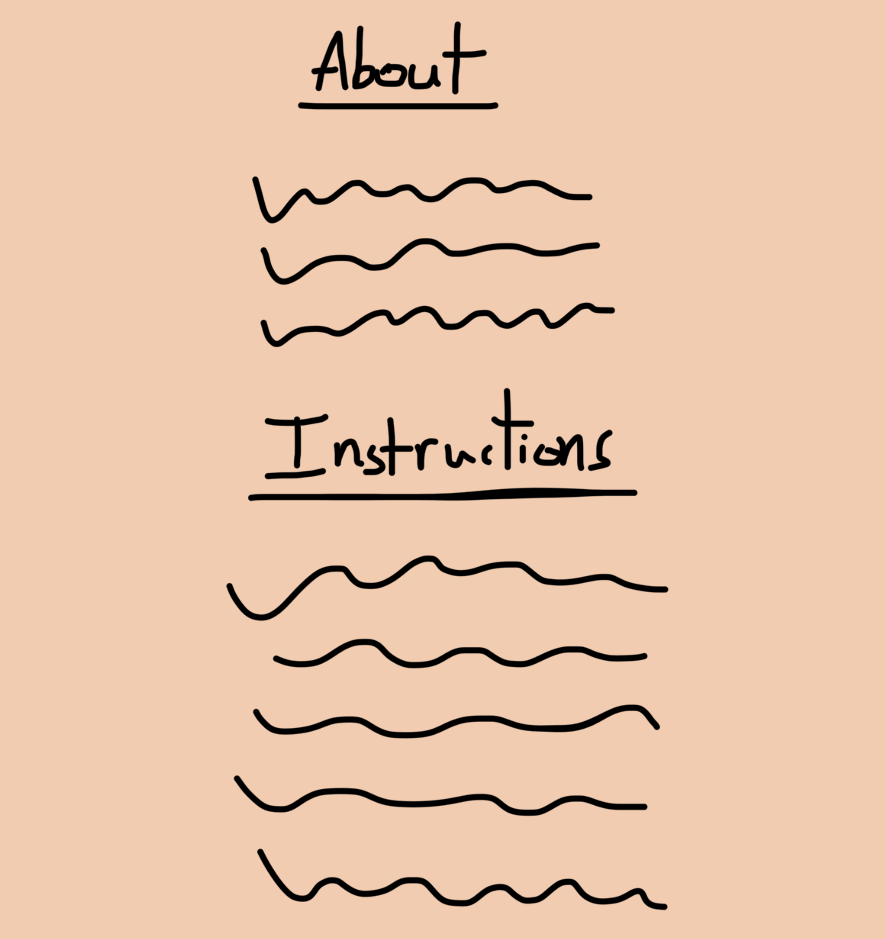 About
Instructions